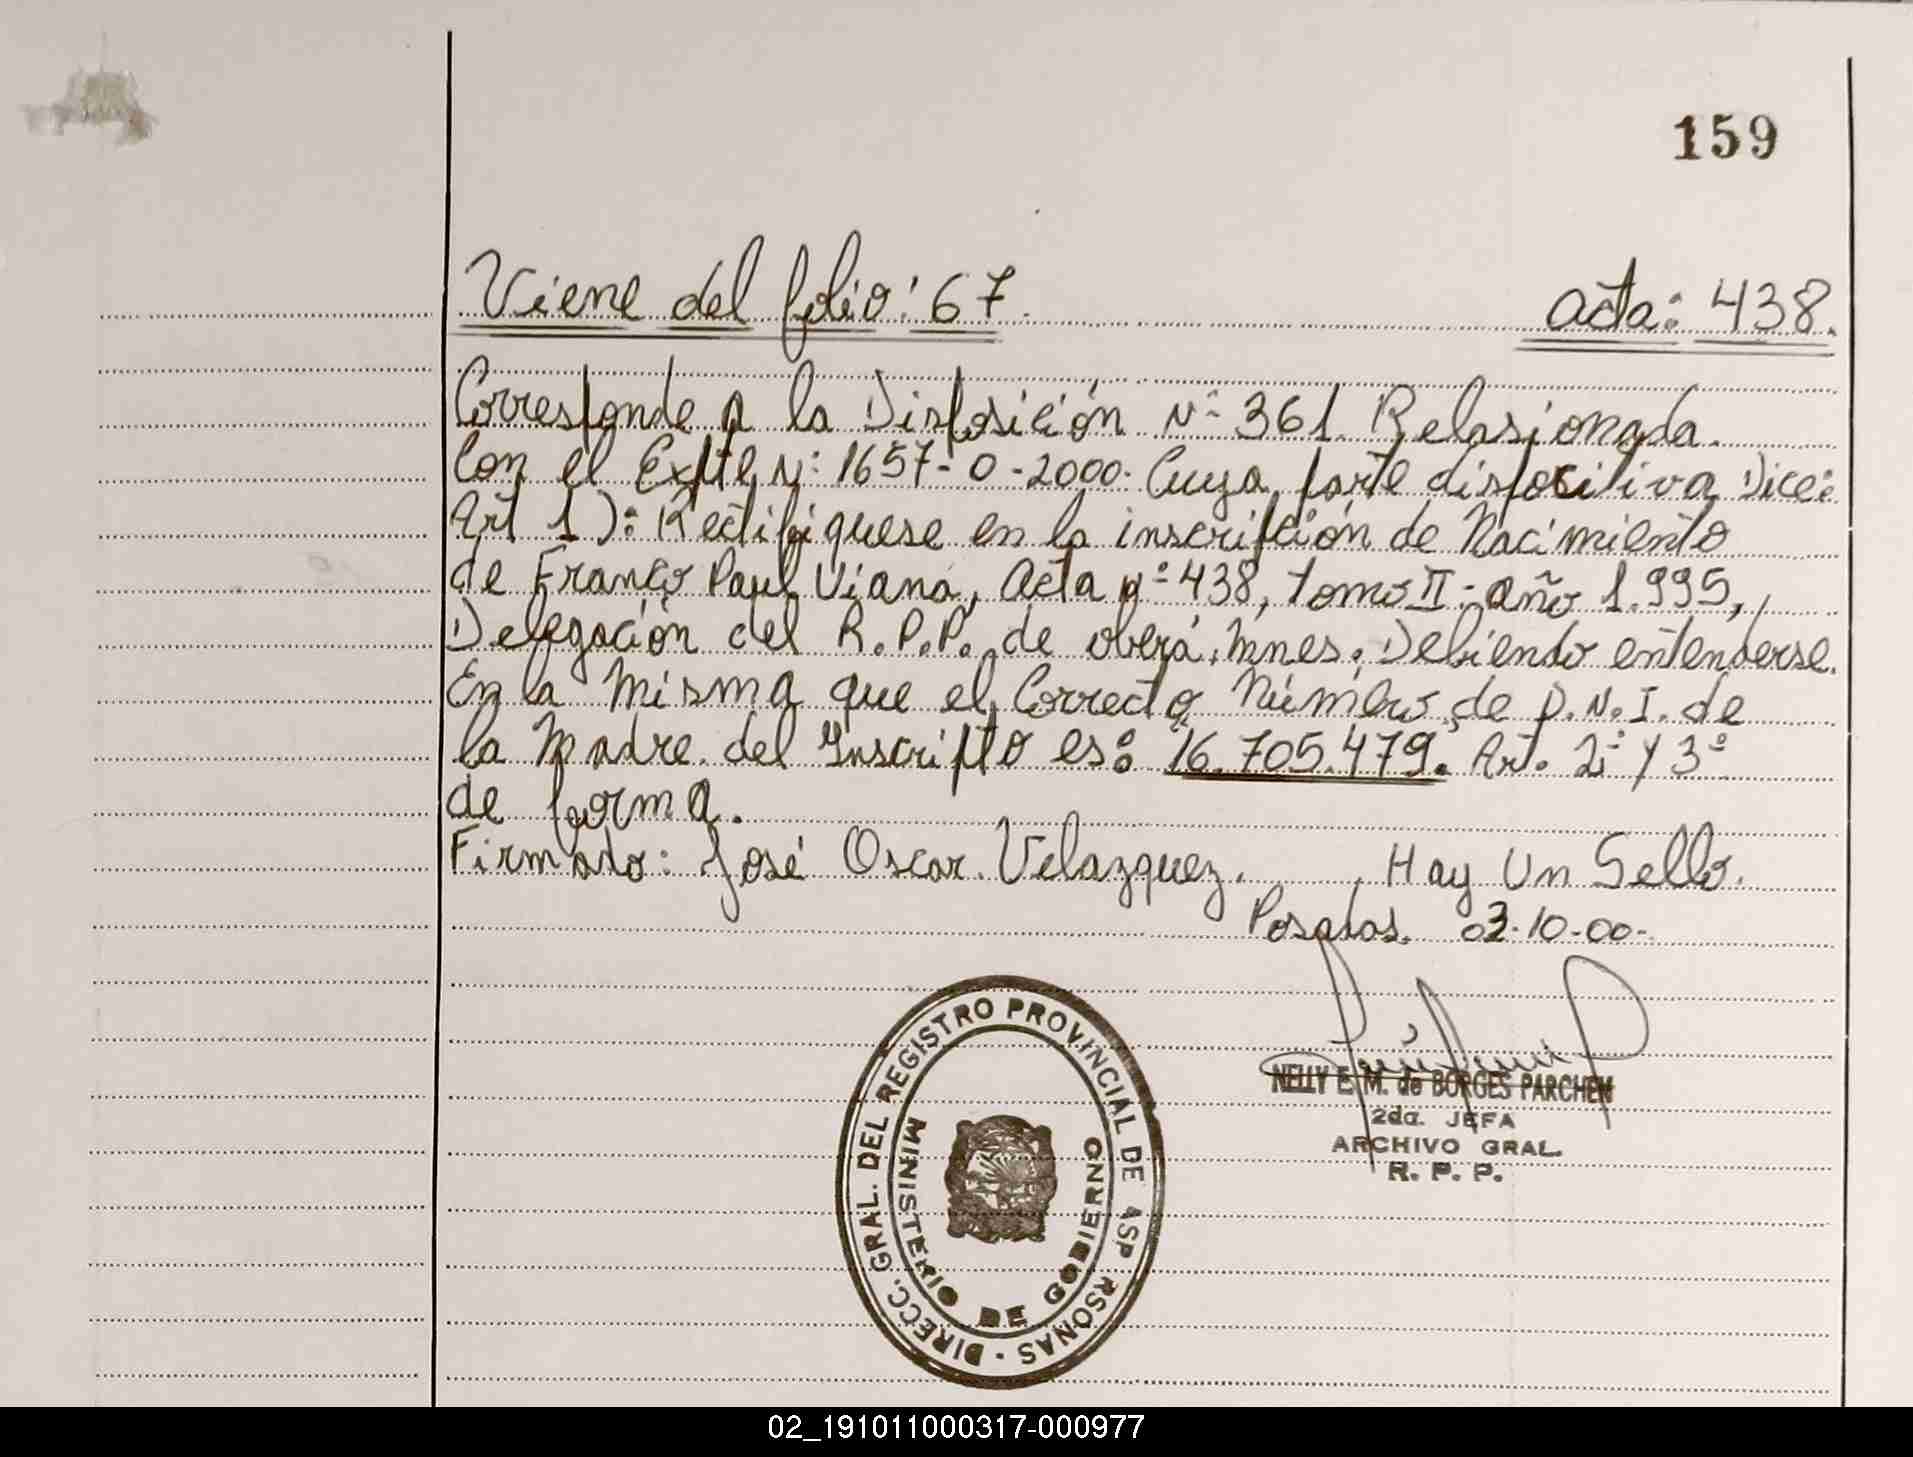 159
Viene del folio: 67. Acta: 438.
Corresponde a la Disposición Nº 361 Relasionada.
Con el Expte Nº: 1657-0-2000. Cuya parte dispocitiva Dice:
Art 1): Rectifiquese en la inscripción de Nacimiento
de Franco Paul Viana, Acta nº 438, Tomo II - año 1.995,
Delegación del R.P.P. de oberá, Mnes. Debiendo entenderse.
En la Misma que el Correcto Número de D.N.I. de
la Madre. del Inscripto es: 16.705.479. Art. 2º y 3º
de forma.
Firmado: José Oscar. Velazquez. Hay Un Sello.
Posadas. 03-10-00-
NELLY E. M. de BORGES PARCHEM
2da. JEFA
ARCHIVO GRAL.
R. P. P.
DIRECC. GRAL. DEL REGISTRO PROVINCIAL DE ASP RSONAS -
MINISTERIO DE GOBIERNO
02_191011000317-000977